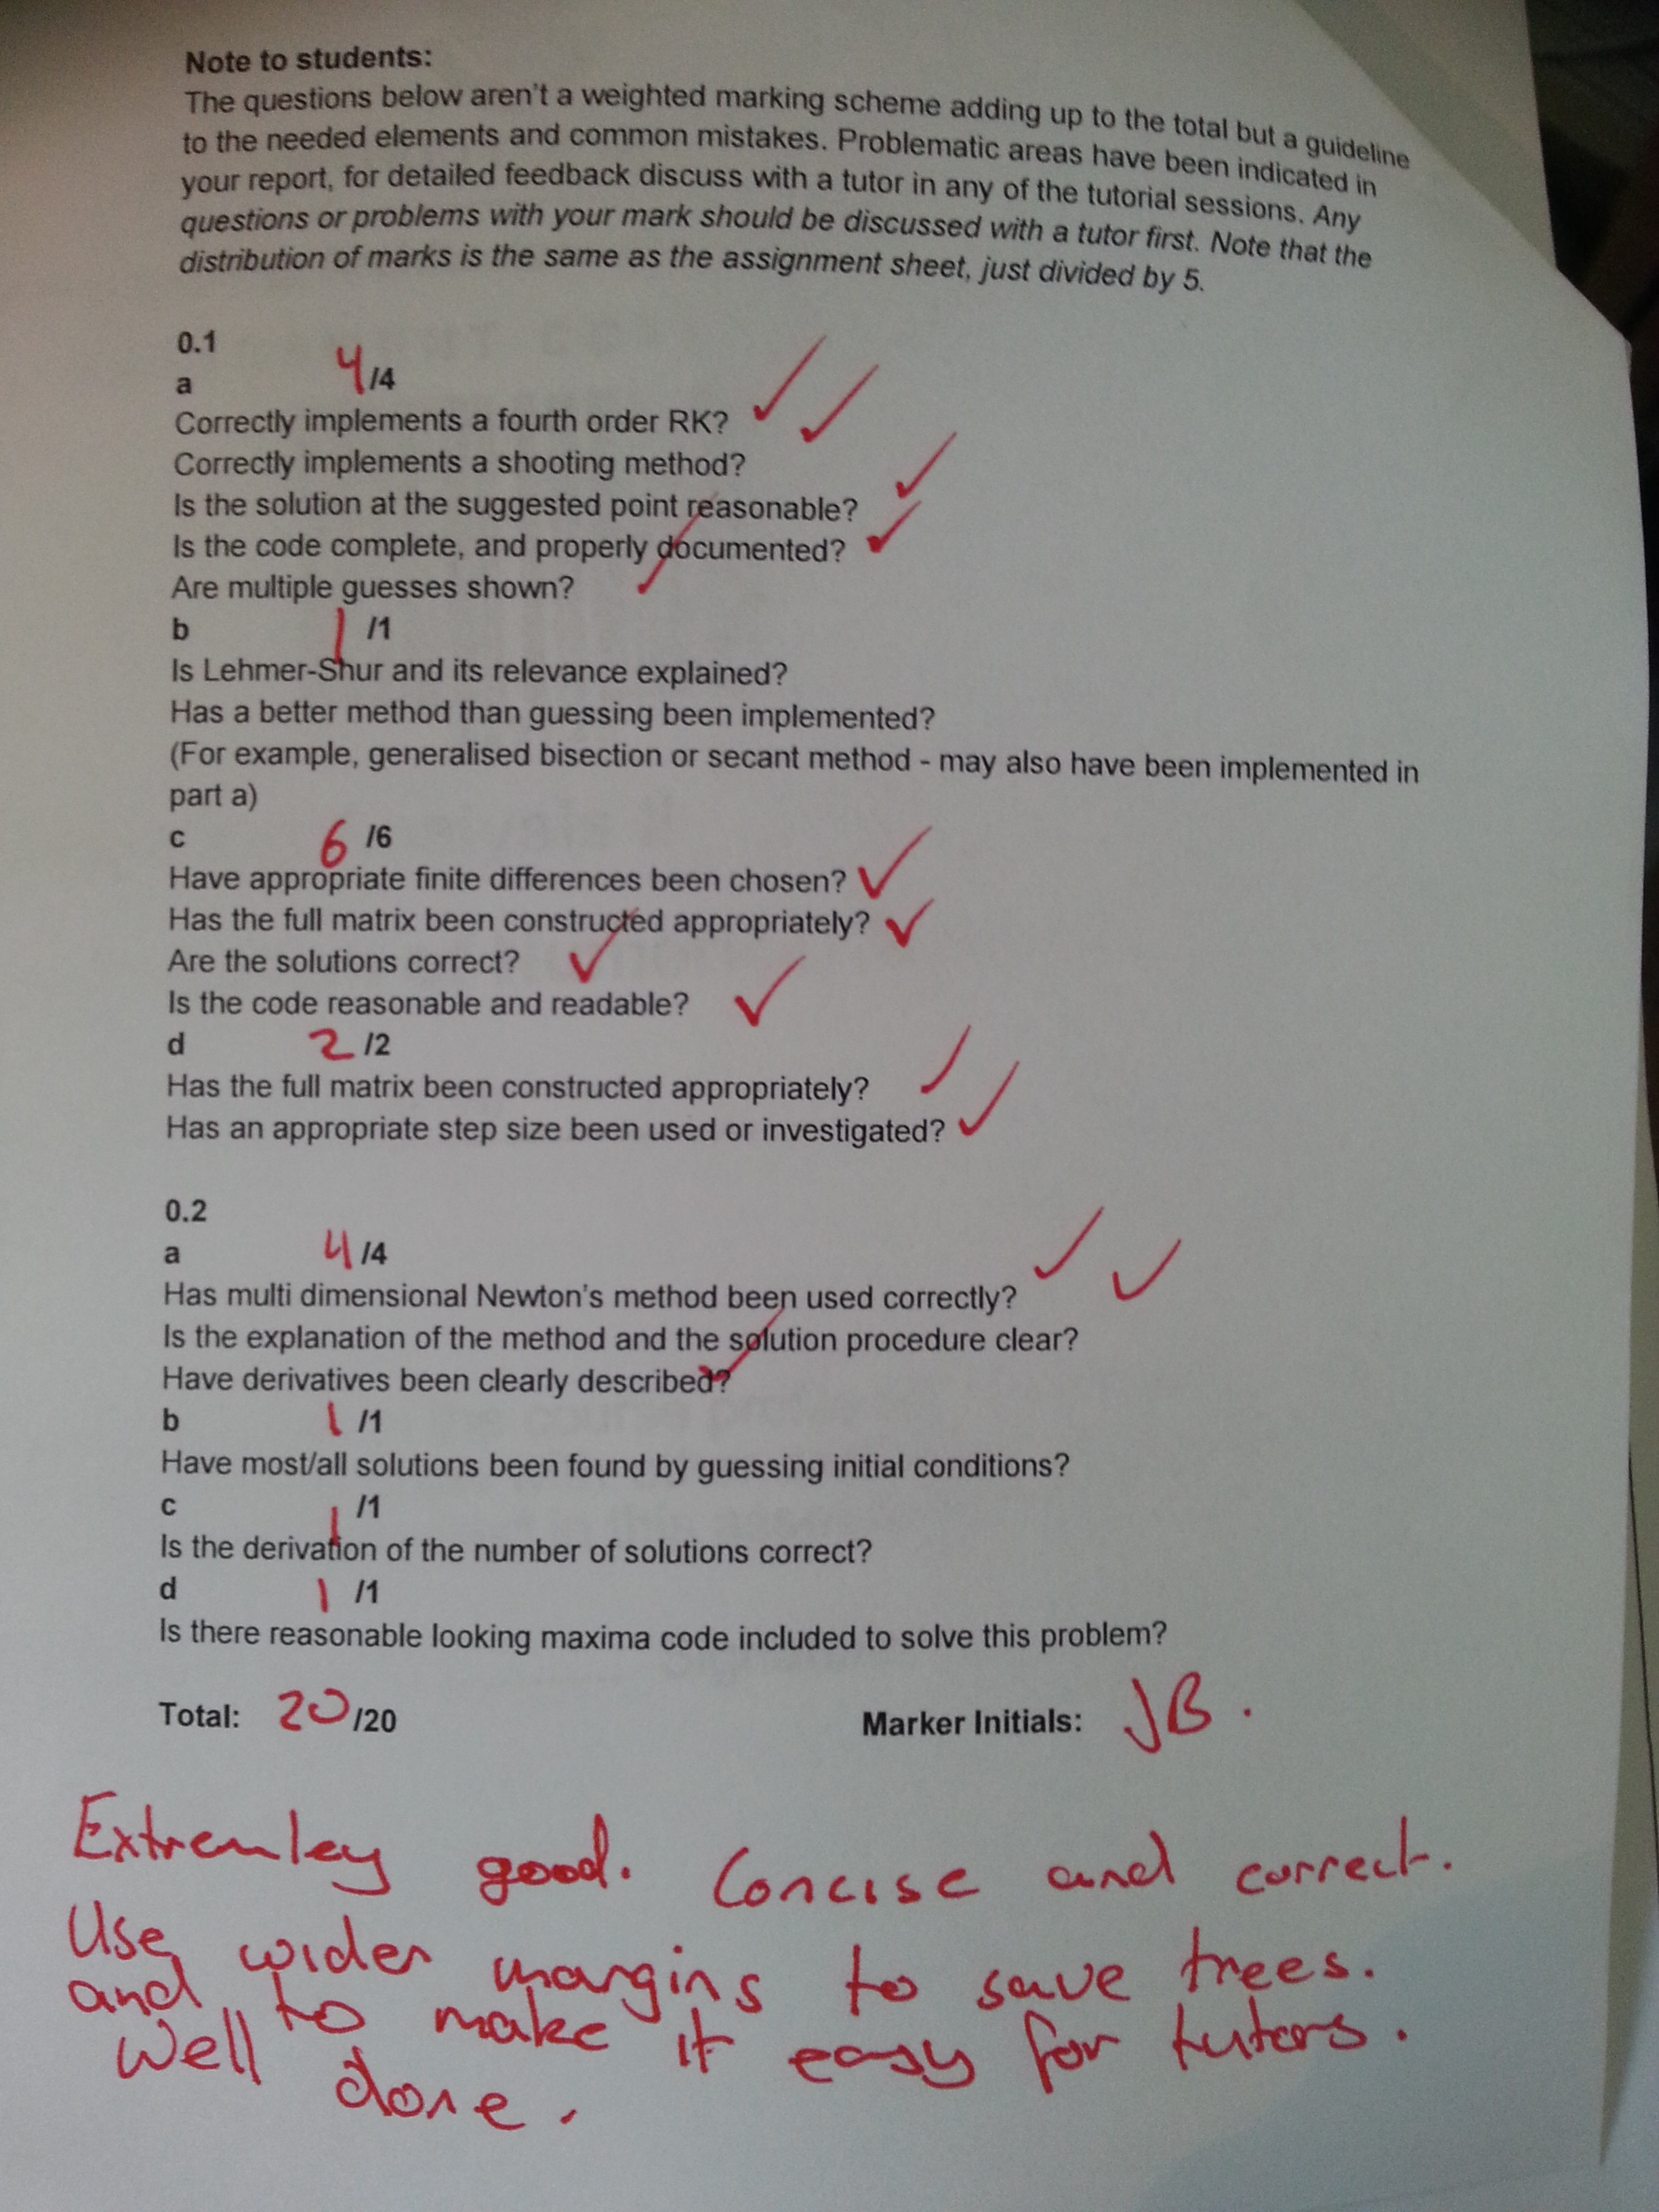 Note to students:
The questions below aren't a weighted marking scheme adding up to the total but a guideline
to the needed elements and common mistakes. Problematic areas have been indicated in
your report, for detailed feedback discuss with a tutor in any of the tutorial sessions. Any
questions or problems with your mark should be discussed with a tutor first. Note that the
distribution of marks is the same as the assignment sheet, just divided by 5.
0.1
a 4/4
Correctly implements a fourth order RK?
Correctly implements a shooting method?
Is the solution at the suggested point reasonable?
Is the code complete, and properly documented?
Are multiple guesses shown?
b 1/1
Is Lehmer-Shur and its relevance explained?
Has a better method than guessing been implemented?
(For example, generalised bisection or secant method - may also have been implemented in
part a)
c 6/6
Have appropriate finite differences been chosen?
Has the full matrix been constructed appropriately?
Are the solutions correct?
Is the code reasonable and readable?
d 2/2
Has the full matrix been constructed appropriately?
Has an appropriate step size been used or investigated?
0.2
a 4/4
Has multi dimensional Newton's method been used correctly?
Is the explanation of the method and the solution procedure clear?
Have derivatives been clearly described?
b 1/1
Have most/all solutions been found by guessing initial conditions?
c 1/1
Is the derivation of the number of solutions correct?
d 1/1
Is there reasonable looking maxima code included to solve this problem?
Total: 20/20 Marker Initials: JB.
Extremley good. Concise and correct.
Use wider margins to save trees.
and to make it easy for tutors.
Well done.